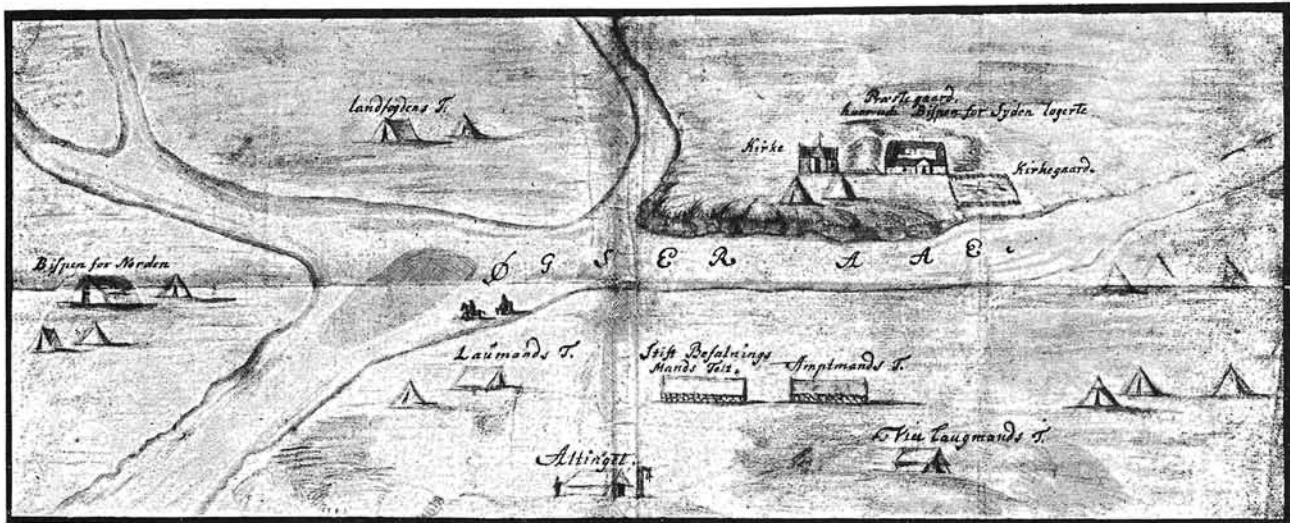 Landfogdens T.
Præstegaard.
hvorved Bispen for Syden logerte
Kirke
Kirkegaard.
Bispen for Norden
ØGSER AAE.
Laumands T.
Stift Befalnings
Mands Telt.
Amptmands T.
Vice Laugmands T.
Altinget.